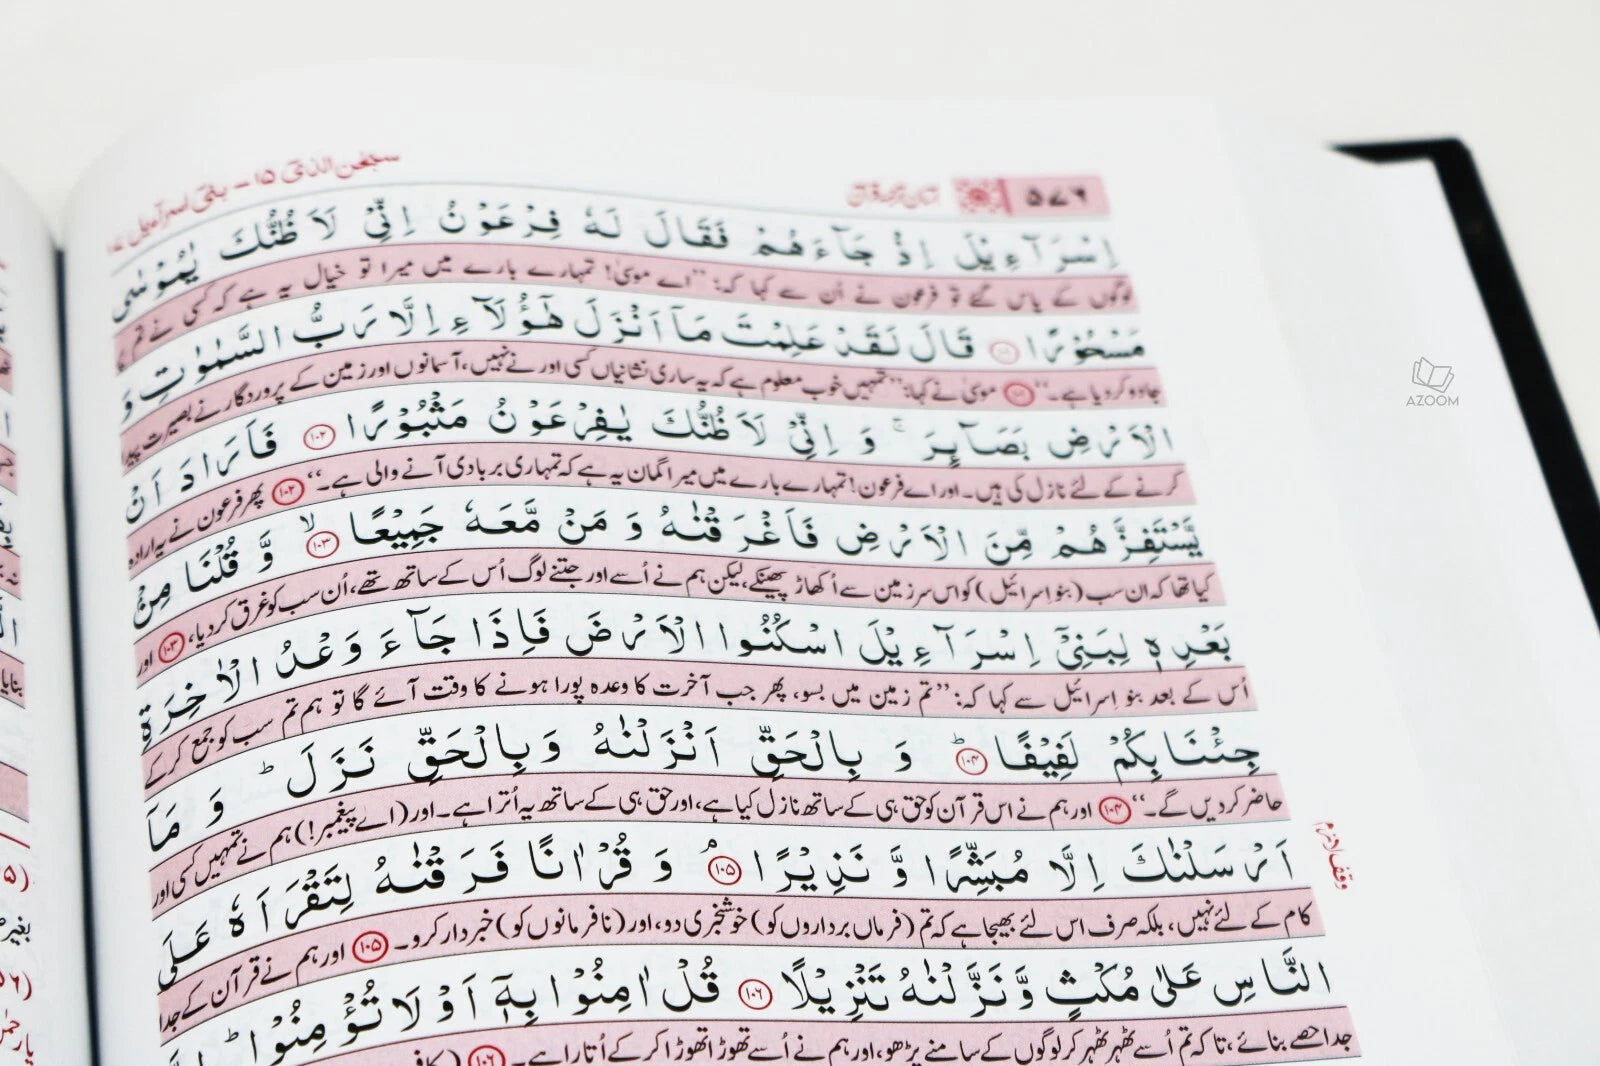 ۵۷۶ آسان ترجمۂ قرآن سُبْحٰنَ الَّذِیْۤ ۱۵ - بَنِیْۤ اِسْرَآءِیْل ۱۷
اِسْرَآءِیْلَ اِذْ جَآءَهُمْ فَقَالَ لَهٗ فِرْعَوْنُ اِنِّیْ لَاَظُنُّكَ یٰمُوْسٰی
لوگوں کے پاس گئے تو فرعون نے اُن سے کہا کہ: ”اے موسیٰ! تمہارے بارے میں میرا تو خیال یہ ہے کہ کسی نے تم
مَسْحُوْرًا ۱۰۱ قَالَ لَقَدْ عَلِمْتَ مَاۤ اَنْزَلَ هٰۤؤُلَآءِ اِلَّا رَبُّ السَّمٰوٰتِ وَ
جادو کر دیا ہے۔“ ۱۰۱ موسیٰ نے کہا: ”تمہیں خوب معلوم ہے کہ یہ ساری نشانیاں کسی اور نے نہیں، آسمانوں اور زمین کے پروردگار نے بصیرت پیدا
الْاَرْضِ بَصَآىِٕرَ ۚ وَ اِنِّیْ لَاَظُنُّكَ یٰفِرْعَوْنُ مَثْبُوْرًا ۱۰۲ فَاَرَادَ اَنْ
کرنے کے لئے نازل کی ہیں۔ اور اے فرعون! تمہارے بارے میں میرا گمان یہ ہے کہ تمہاری بربادی آنے والی ہے۔“ ۱۰۲ پھر فرعون نے یہ ارادہ
یَّسْتَفِزَّهُمْ مِّنَ الْاَرْضِ فَاَغْرَقْنٰهُ وَ مَنْ مَّعَهٗ جَمِیْعًا ۱۰۳ ۙ وَّ قُلْنَا مِنْۢ
کیا تھا کہ ان سب (بنو اسرائیل) کو اس سر زمین سے اُکھاڑ پھینکے، لیکن ہم نے اُسے اور جتنے لوگ اُس کے ساتھ تھے، اُن سب کو غرق کر دیا، ۱۰۳ اور
بَعْدِهٖ لِبَنِیْۤ اِسْرَآءِیْلَ اسْكُنُوا الْاَرْضَ فَاِذَا جَآءَ وَعْدُ الْاٰخِرَةِ
اُس کے بعد بنو اسرائیل سے کہا کہ: ”تم زمین میں بسو، پھر جب آخرت کا وعدہ پورا ہونے کا وقت آئے گا تو ہم تم سب کو جمع کر کے
جِئْنَا بِكُمْ لَفِیْفًا ۱۰۴ ؕ وَ بِالْحَقِّ اَنْزَلْنٰهُ وَ بِالْحَقِّ نَزَلَ ؕ وَ مَاۤ
حاضر کر دیں گے۔“ ۱۰۴ اور ہم نے اس قرآن کو حق ہی کے ساتھ نازل کیا ہے، اور حق ہی کے ساتھ یہ اُترا ہے۔ اور (اے پیغمبر!) ہم نے تمہیں کسی اور
اَرْسَلْنٰكَ اِلَّا مُبَشِّرًا وَّ نَذِیْرًا ۱۰۵ ۘ وَ قُرْاٰنًا فَرَقْنٰهُ لِتَقْرَاَهٗ عَلَی
وقف لازم
کام کے لئے نہیں، بلکہ صرف اس لئے بھیجا ہے کہ تم (فرماں برداروں کو) خوشخبری دو، اور (نافرمانوں کو) خبردار کرو۔ ۱۰۵ اور ہم نے قرآن کے جدا
النَّاسِ عَلٰی مُكْثٍ وَّ نَزَّلْنٰهُ تَنْزِیْلًا ۱۰۶ قُلْ اٰمِنُوْا بِهٖۤ اَوْ لَا تُؤْمِنُوْا ؕ
جدا حصے بنائے، تاکہ تم اُسے ٹھہر ٹھہر کر لوگوں کے سامنے پڑھو، اور ہم نے اُسے تھوڑا تھوڑا کر کے اُتارا ہے۔ ۱۰۶
AZOOM